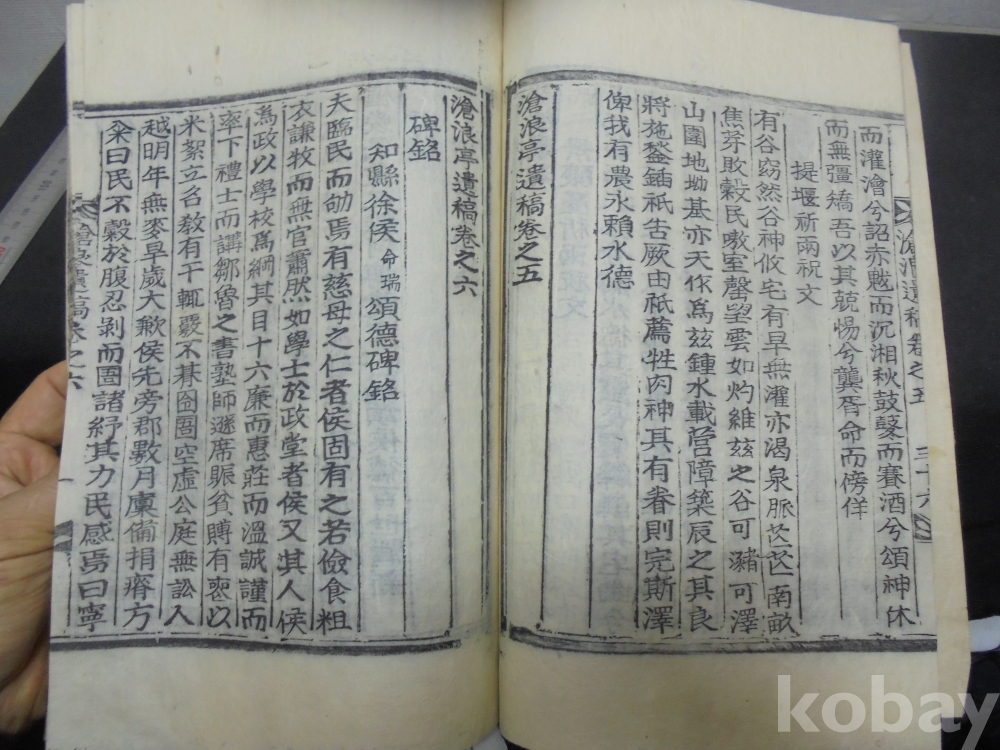 而灌澮兮詔赤魃而沉湘秋鼓鼕而賽酒兮頌神休
而無彊矯吾以其兢惕兮龔胥命而傍佯
提堰祈雨祝文
有谷窈然谷神攸宅有早無灌亦渴泉脈芒芒南畝
焦芽敗穀民嗷室罄望雲如灼維玆之谷可瀦可澤
山圍地坳基亦天作爲玆鍾水載營障築辰之其良
將施鍫鍤祇告厥由祇薦牲肉神其有眷則完斯澤
俾我有農永賴水德
滄浪亭遺稿卷之五
滄浪遺稿卷之五 三十六
滄浪亭遺稿卷之六
碑銘
知縣徐侯 命瑞 頌德碑銘
夫臨民而劬焉有慈母之仁者侯固有之若儉食粗
衣謙牧而無官蕭然如學士於政堂者侯又其人侯
爲政以學校爲綱其目十六廉而惠莊而溫誠謹而
率下禮士而講鄒魯之書塾師遜席賑貧賻有喪以
米絮立名敎有干輒覈不朞囹圄空虛公庭無訟入
越明年無麥早歲大歉侯先旁郡數月廩備捐瘠方
粂曰民不穀於腹忍剥而圖諸紓其力民感焉曰寧
滄浪遺稿卷之六 一
kobay